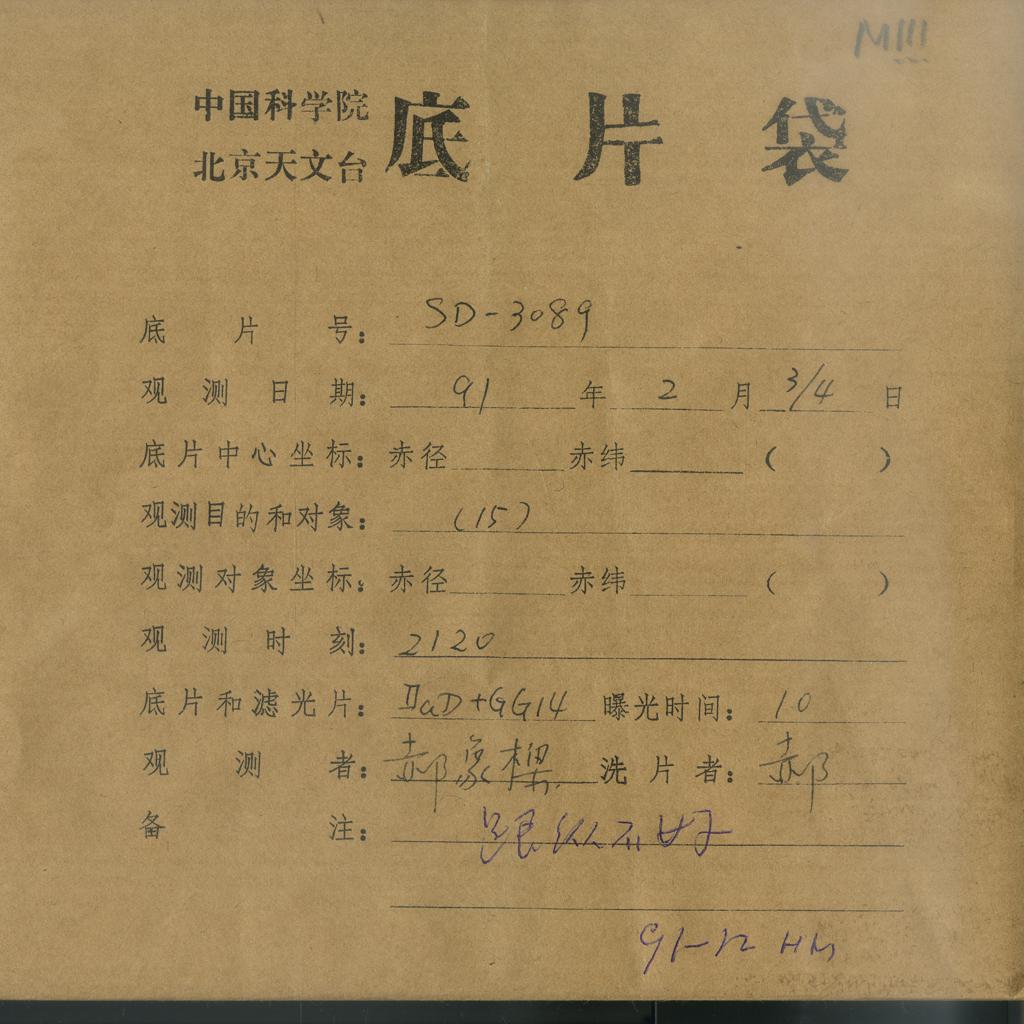 M111
中国科学院
北京天文台
底片袋
底片号: SD-3089
观测日期: 91年2月3/4日
底片中心坐标: 赤径 赤纬 ( )
观测目的和对象: (15)
观测对象坐标: 赤径 赤纬 ( )
观测时刻: 2120
底片和滤光片: IIaD+GG14 曝光时间: 10
观测者: 郝象樑 洗片者: 郝
备注: 跟纵不好
91-12 HM